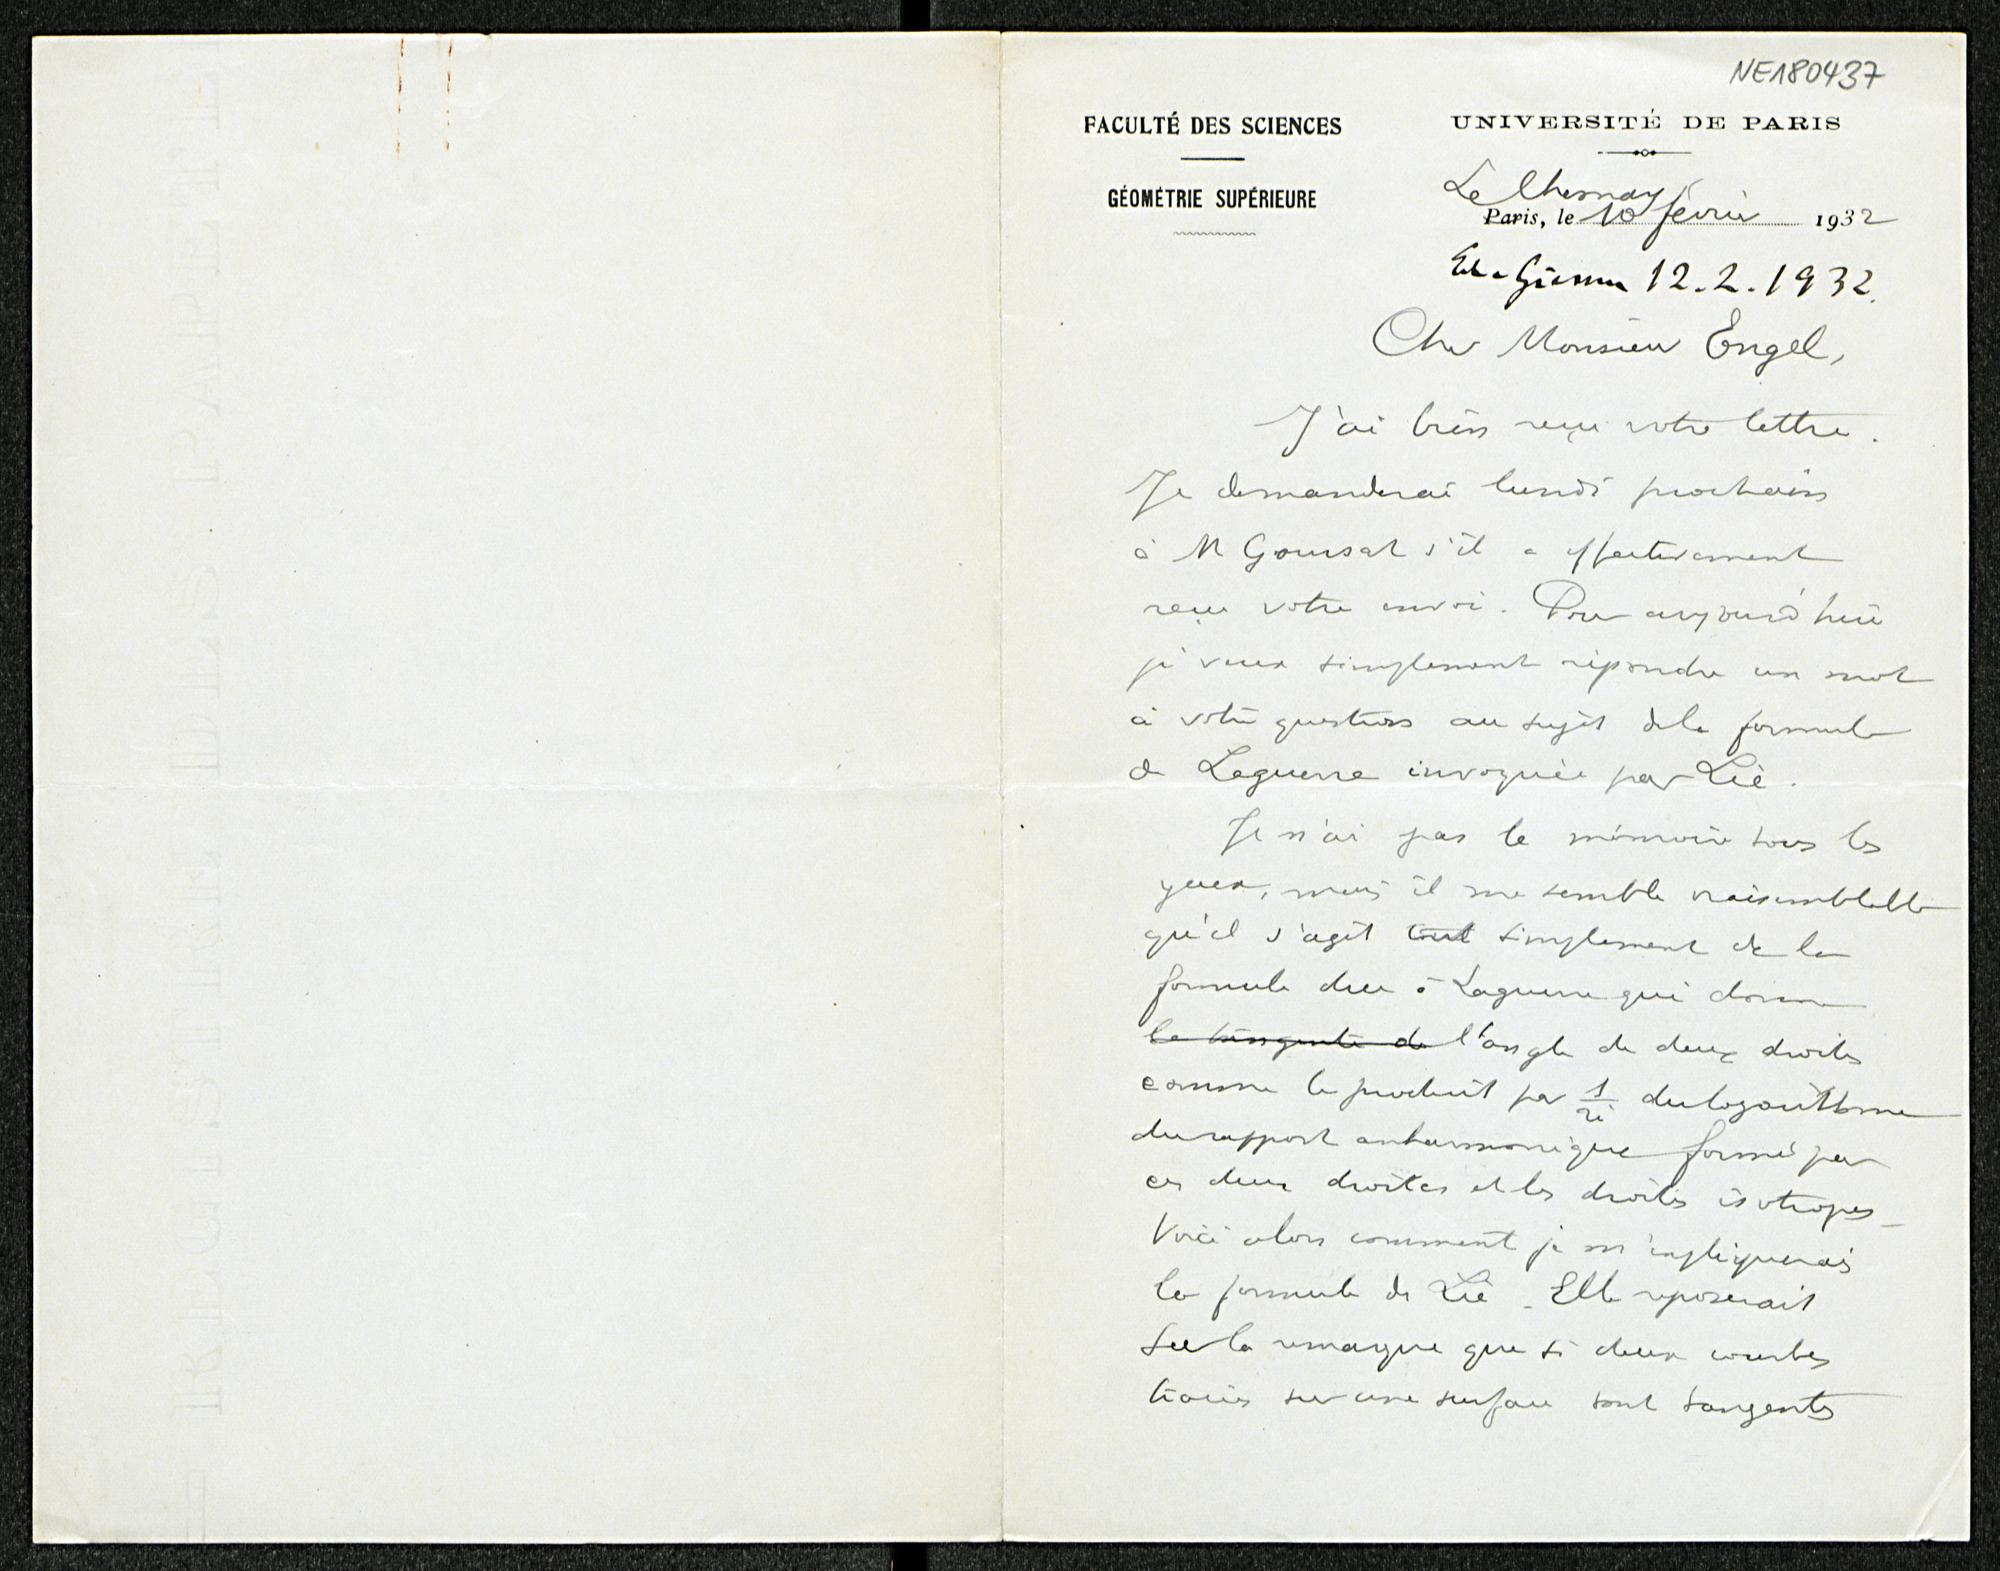 NE180437
FACULTÉ DES SCIENCES
GÉOMÉTRIE SUPÉRIEURE
UNIVERSITÉ DE PARIS
Le Chesnay
Paris, le 10 février 1932
Giessen 12.2.1932.
Cher Monsieur Engel,
J'ai bien reçu votre lettre.
Je demanderai lundi prochain
à M Goursat s'il a effectivement
reçu votre envoi. Pour aujourd'hui
je veux simplement répondre un mot
à votre question au sujet de la formule
de Laguerre invoquée par Lie.
Je n'ai pas le mémoire sous les
yeux, mais il me semble vraisemblable
qu'il s'agit tout simplement de la
formule due à Laguerre qui donne
la tangente de l'angle de deux droites
comme le produit par 1/2i du logarithme
du rapport anharmonique formé par
ces deux droites et les droites isotropes.
Voici alors comment je m'expliquerais
la formule de Lie. Elle reposerait
sur la remarque que si deux courbes
tracées sur une surface sont tangentes
IRE DES PAPETE